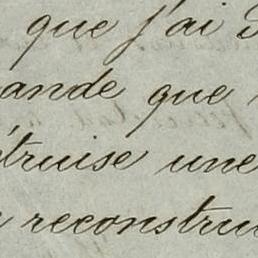 que j'ai
ande que
truise une
reconstru